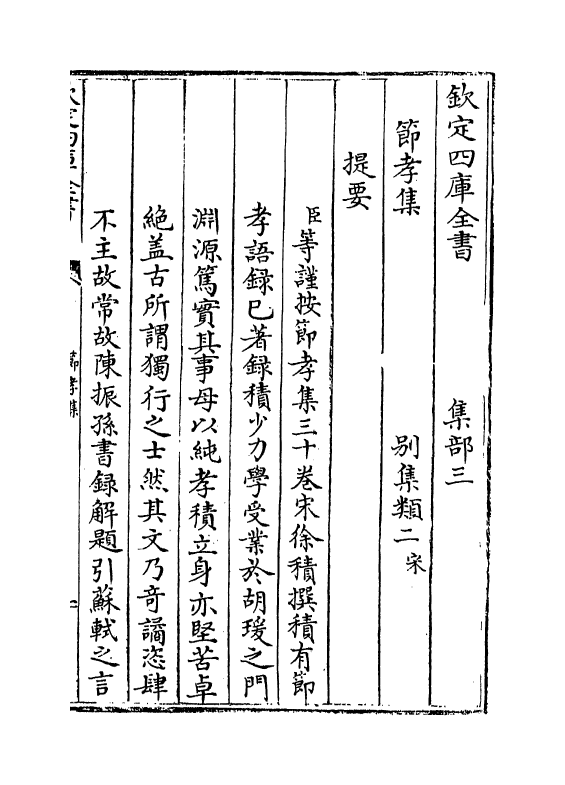 欽定四庫全書　集部三
節孝集　別集類二宋
提要
臣等謹按節孝集三十卷宋徐積撰積有節
孝語録已著録積少力學受業於胡瑗之門
淵源篤實其事母以純孝積立身亦堅苦卓
絶盖古所謂獨行之士然其文乃奇譎恣肆
不主故常故陳振孫書録解題引蘇軾之言
節孝集